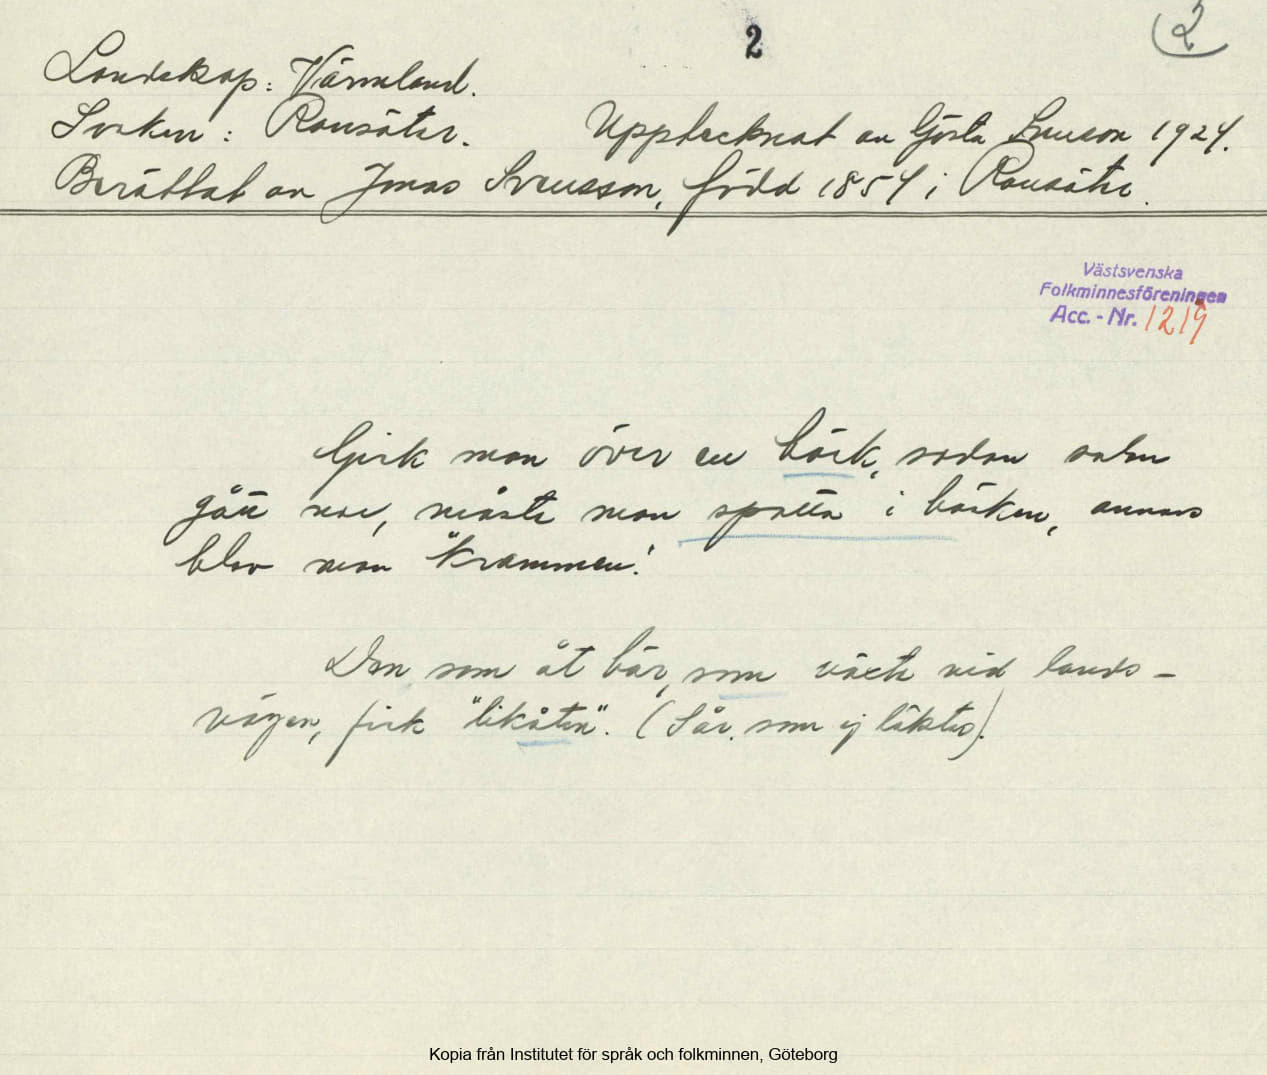 2
2
Landskap: Värmland.
Socken: Ransäter. Upptecknat av Gösta Svenson 1924.
Berättat av Jonas Svensson, född 1854 i Ransäter.
Västsvenska
Folkminnesföreningen
Acc. - Nr. 1219
Gick man över en bäck, sedan solen
gått ner, måste man spotta i bäcken, annars
blev man "krammen".
Den som åt bär, som växte vid lands-
vägen, fick "likåten". (Sår, som ej läktes).
Kopia från Institutet för språk och folkminnen, Göteborg